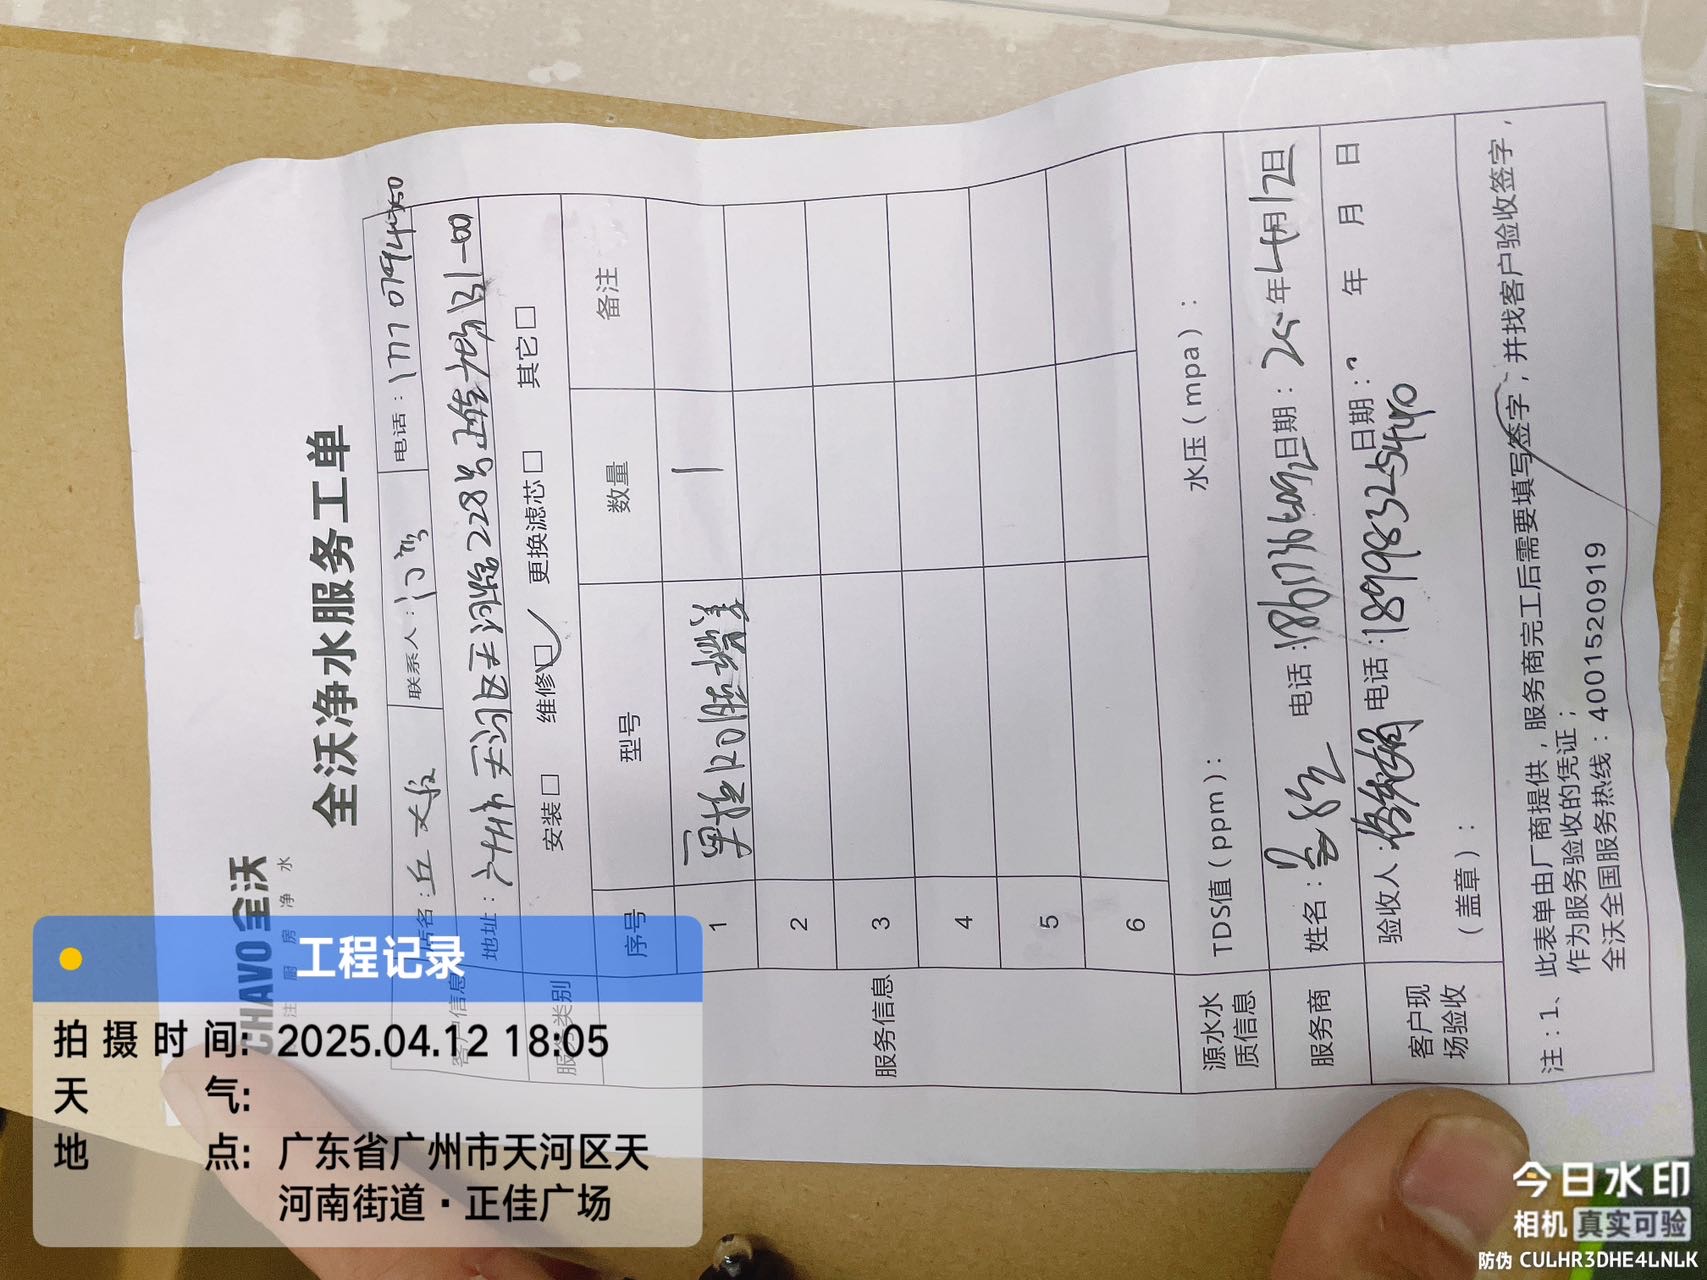 CHAVO 全沃
注 厨 房 净 水
全沃净水服务工单
客户信息 姓名： 联系人： 电话：
地址：广州市天河区天河路228号正佳广场
服务类别 安装□ 维修□✓ 更换滤芯□ 其它□
服务信息 序号 型号 数量 备注
1 1
2
3
4
5
6
源水水质信息 TDS值（ppm）： 水压（mpa）：
服务商 姓名： 电话： 日期：25年4月12日
客户现场验收 验收人： 电话：18998325440 日期： 年 月 日
（盖章）：
注：1、此表单由厂商提供，服务商完工后需要填写签字，并找客户验收签字，
作为服务验收的凭证；
全沃全国服务热线：4001520919
工程记录
拍摄时间：2025.04.12 18:05
天气：
地点：广东省广州市天河区天
河南街道·正佳广场
今日水印
相机 真实可验
防伪 CULHR3DHE4LNLK